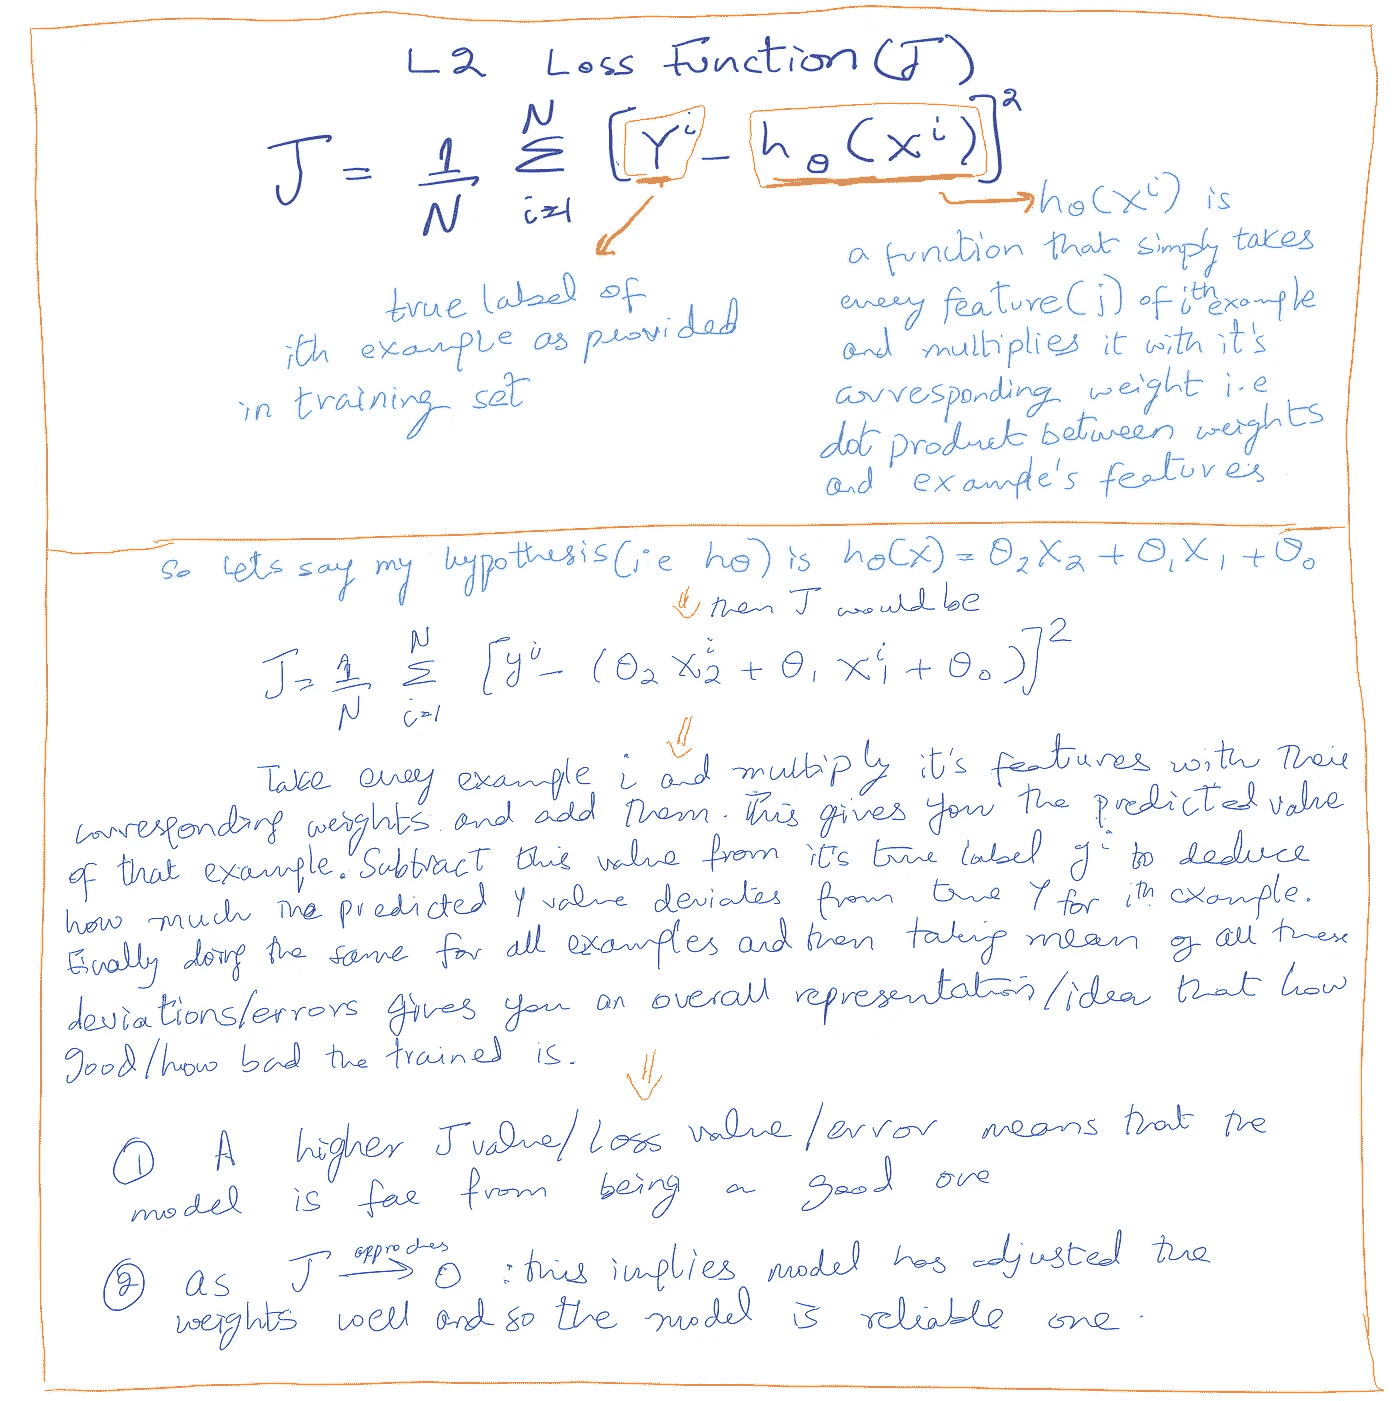 L2 Loss Function (J)
J = 1/N Σ_{i=1}^{N} [Y^i - h_θ(x^i)]^2
true label of
ith example as provided
in training set
h_θ(x^i) is
a function that simply takes
every feature(j) of ith example
and multiplies it with it's
corresponding weight i.e
dot product between weights
and example's features
So lets say my hypothesis(i.e h_θ) is h_θ(x) = θ_2 X_2 + θ_1 X_1 + θ_0
⇓ then J would be
J = 1/N Σ_{i=1}^{N} [y^i - (θ_2 x_2^i + θ_1 x_1^i + θ_0)]^2
Take every example i and multiply it's features with their
corresponding weights and add them. This gives you the predicted value
of that example. Subtract this value from it's true label y^i to deduce
how much the predicted Y value deviates from true Y for ith example.
Finally doing the same for all examples and then taking mean of all these
deviations/errors gives you an overall representation/idea that how
good/how bad the trained is.
① A higher J value/Loss value/error means that the
model is far from being a good one
② as J approches → 0 : this implies model has adjusted the
weights well and so the model is reliable one.